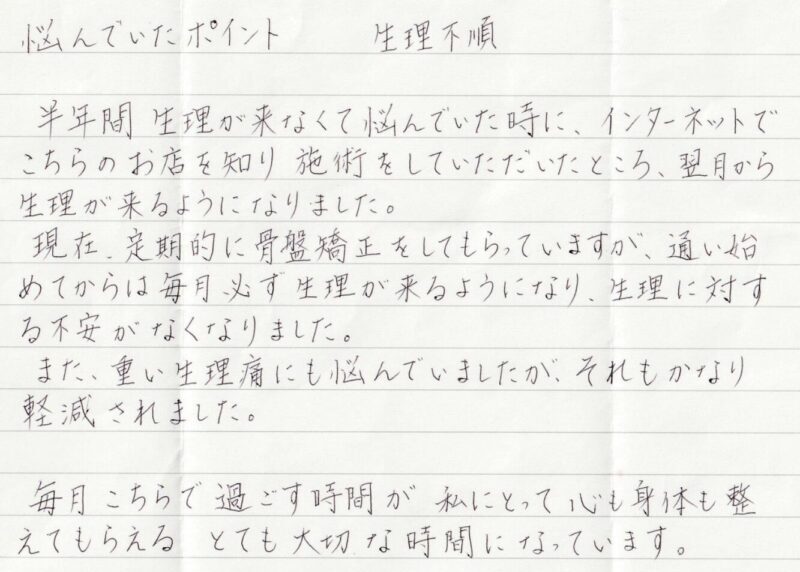 悩んでいたポイント　　生理不順
半年間 生理が来なくて悩んでいた時に、インターネットで
こちらのお店を知り 施術をしていただいたところ、翌月から
生理が来るようになりました。
現在、定期的に骨盤矯正をしてもらっていますが、通い始
めてからは毎月必ず生理が来るようになり、生理に対す
る不安がなくなりました。
また、重い生理痛にも悩んでいましたが、それもかなり
軽減されました。
毎月こちらで過ごす時間が 私にとって心も身体も整
えてもらえる とても大切な時間になっています。